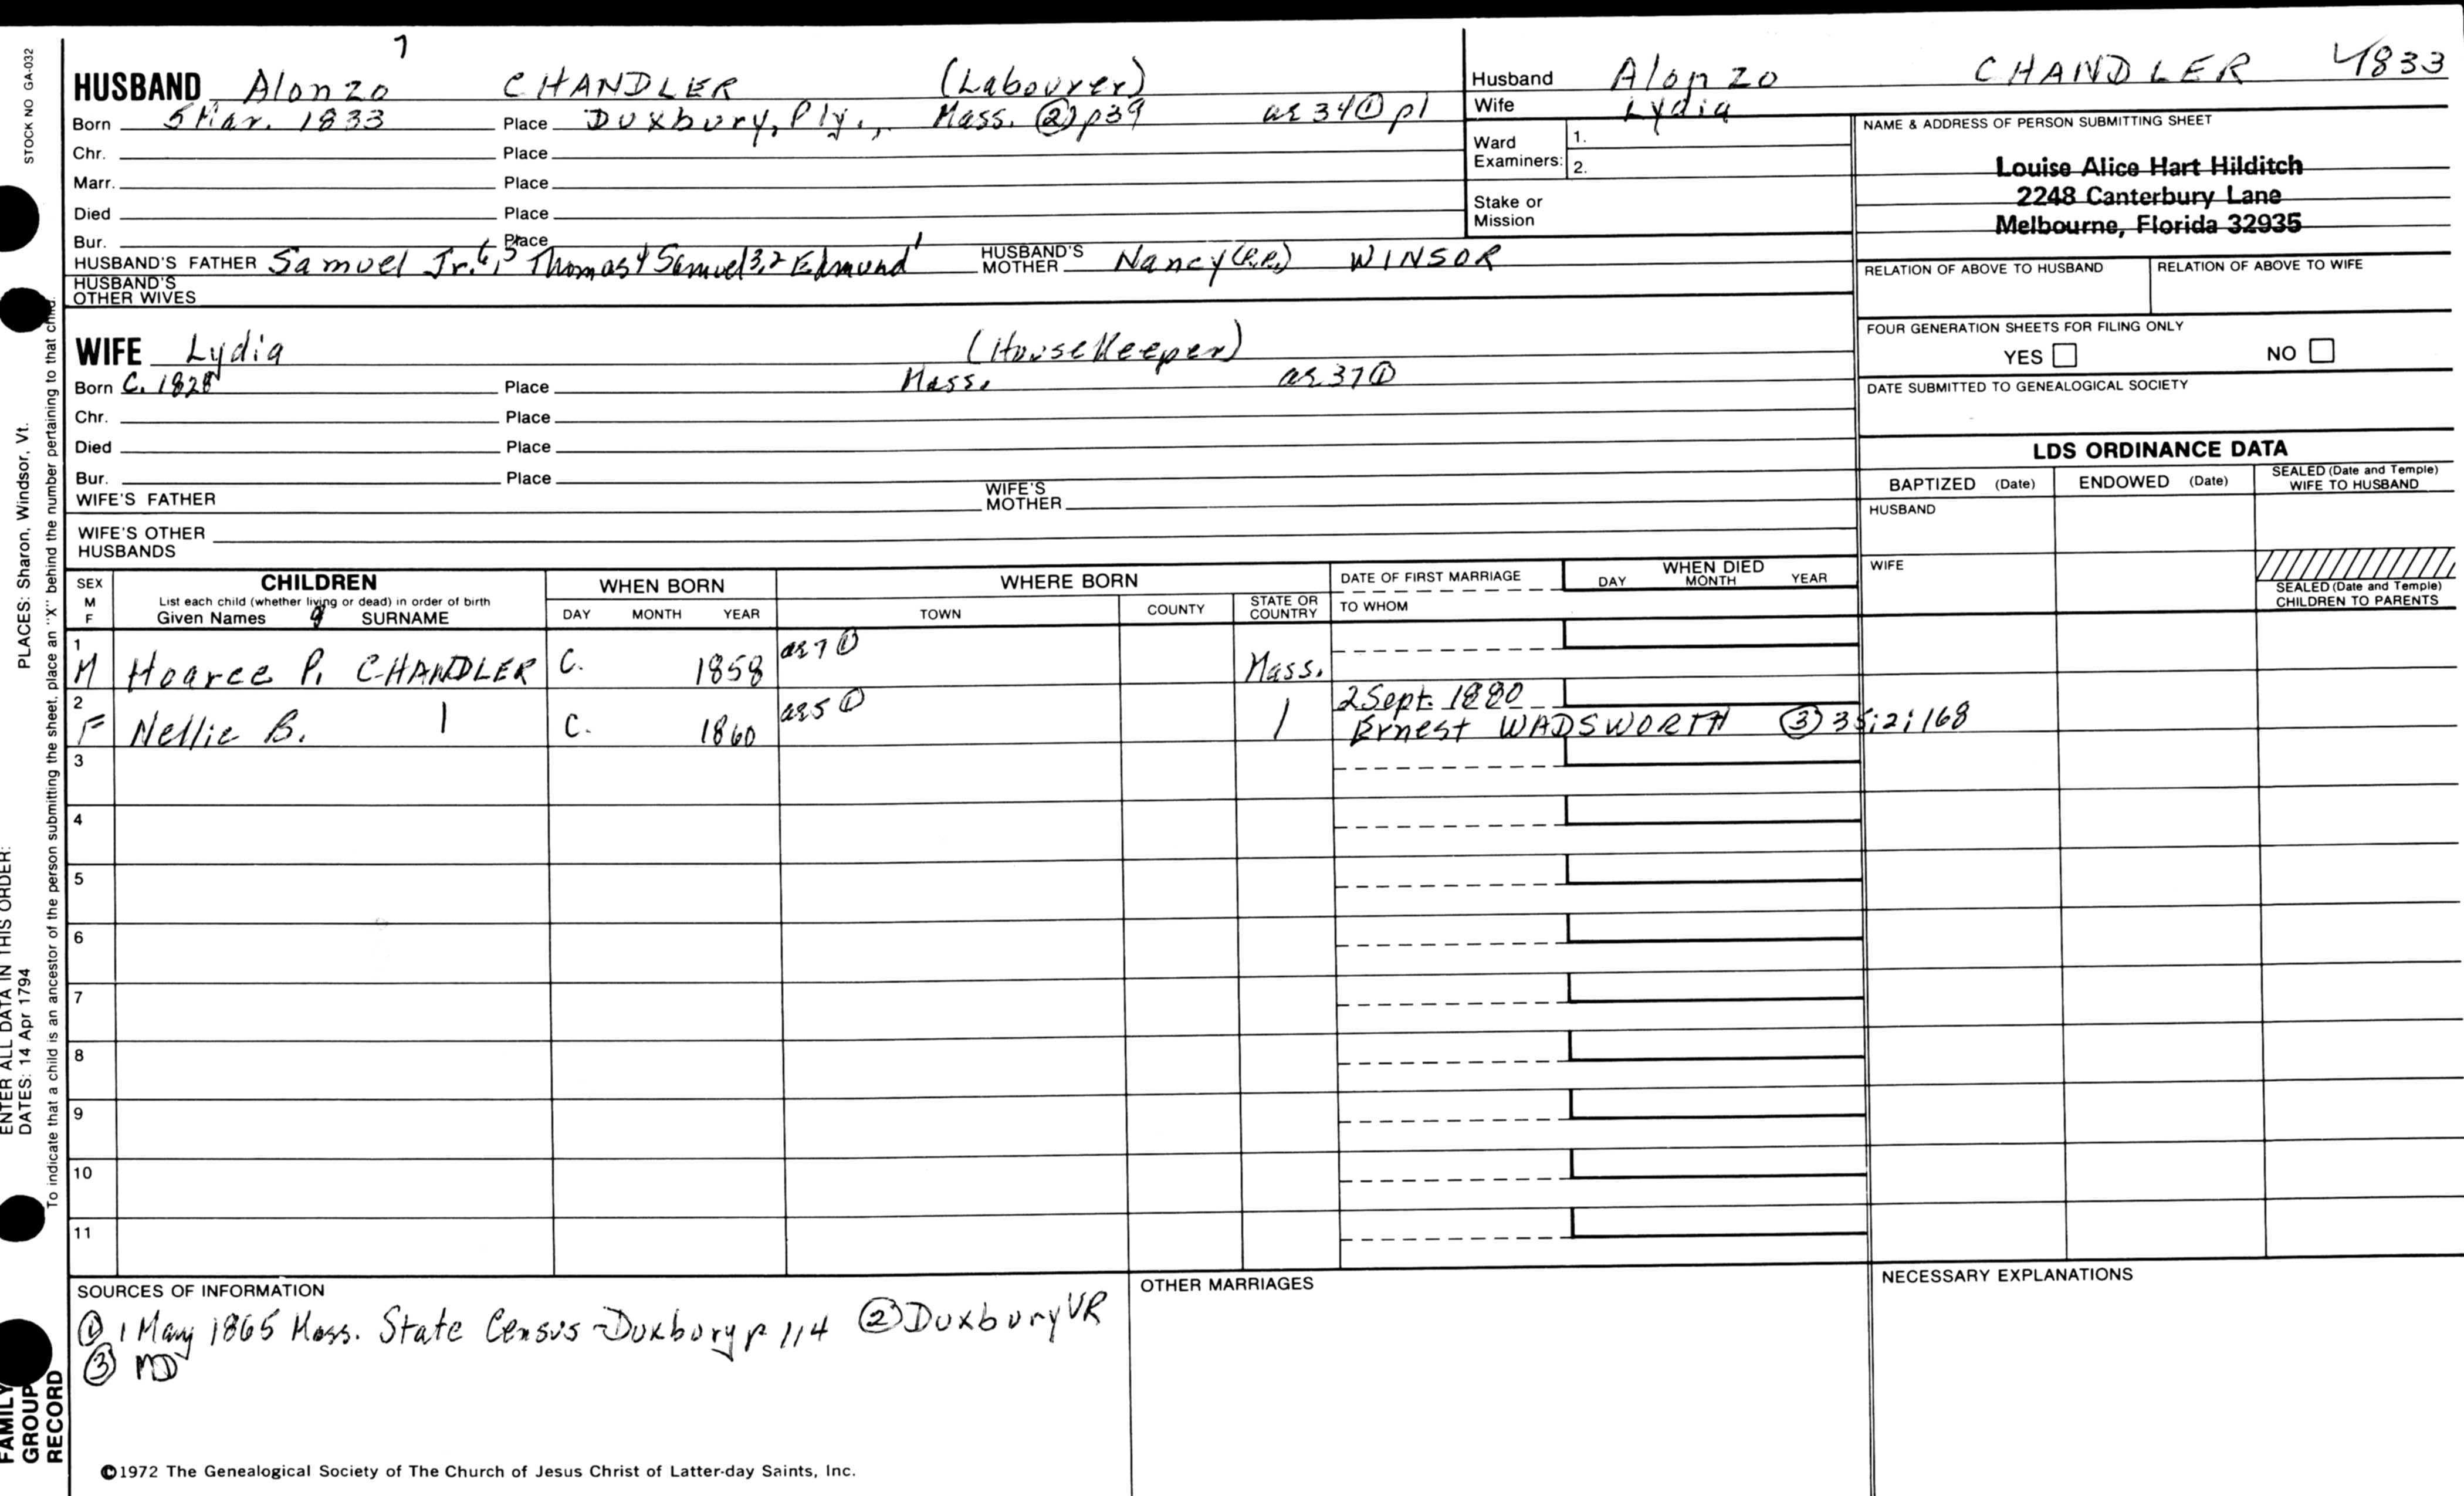 STOCK NO GA-032
7
HUSBAND Alonzo CHANDLER (Labourer)
Born 5 Mar. 1833 Place Duxbury, Ply., Mass. ② p39 ae 34 ① p1
Chr. Place
Marr. Place
Died Place
Bur. Place
HUSBAND'S FATHER Samuel Jr. 6,5 Thomas 4 Samuel 3,2 Edmund 1 HUSBAND'S MOTHER Nancy (P.P.) WINSOR
HUSBAND'S OTHER WIVES
Husband Alonzo CHANDLER 1833
Wife Lydia
Ward Examiners: 1.
2.
Stake or Mission
NAME & ADDRESS OF PERSON SUBMITTING SHEET
Louise Alice Hart Hilditch
2248 Canterbury Lane
Melbourne, Florida 32935
RELATION OF ABOVE TO HUSBAND RELATION OF ABOVE TO WIFE
FOUR GENERATION SHEETS FOR FILING ONLY
YES NO
DATE SUBMITTED TO GENEALOGICAL SOCIETY
WIFE Lydia (HouseKeeper)
Born C. 1828 Place Mass. ae 37 ①
Chr. Place
Died Place
Bur. Place
WIFE'S FATHER WIFE'S MOTHER
WIFE'S OTHER HUSBANDS
LDS ORDINANCE DATA
BAPTIZED (Date) ENDOWED (Date) SEALED (Date and Temple) WIFE TO HUSBAND
HUSBAND
WIFE
SEALED (Date and Temple) CHILDREN TO PARENTS
SEX M F CHILDREN WHEN BORN WHERE BORN DATE OF FIRST MARRIAGE WHEN DIED
List each child (whether living or dead) in order of birth
Given Names SURNAME DAY MONTH YEAR TOWN COUNTY STATE OR COUNTRY TO WHOM DAY MONTH YEAR
1 M Hoarce P. CHANDLER C. 1858 ae 7 ① Mass.
2 F Nellie B. | C. 1860 ae 5 ① | 2 Sept. 1880
Ernest WADSWORTH ③ 35;2;168
3
4
5
6
7
8
9
10
11
SOURCES OF INFORMATION
① 1 May 1865 Mass. State Census - Duxbury p 114 ② Duxbury VR
③ MD
OTHER MARRIAGES
NECESSARY EXPLANATIONS
©1972 The Genealogical Society of The Church of Jesus Christ of Latter-day Saints, Inc.
FAMILY GROUP RECORD
ENTER ALL DATA IN THIS ORDER:
DATES: 14 Apr 1794 PLACES: Sharon, Windsor, Vt.
To indicate that a child is an ancestor of the person submitting the sheet, place an "X" behind the number pertaining to that child.